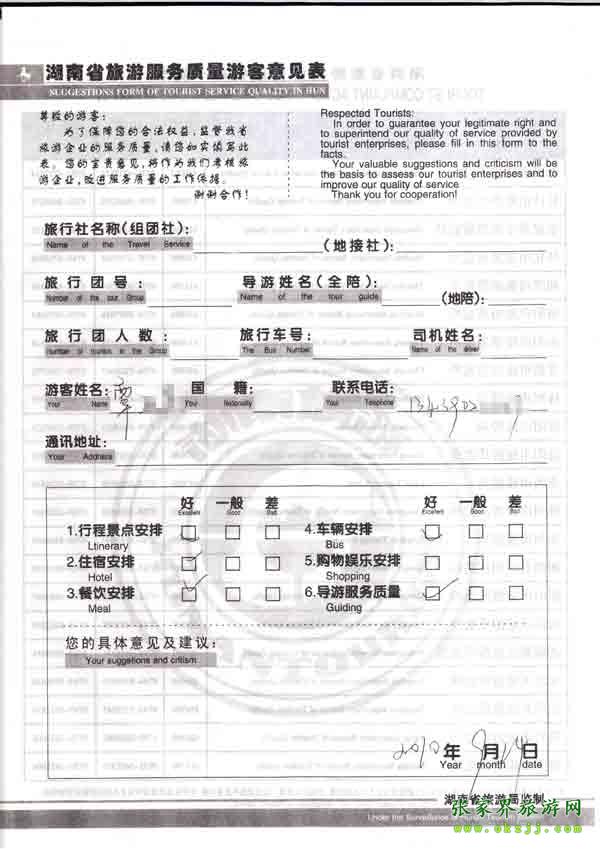 湖南省旅游服务质量游客意见表
SUGGESTIONS FORM OF TOURIST SERVICE QUALITY IN HUN
尊敬的游客：
为了保障您的合法权益，监督我省
旅游企业的服务质量，请您如实填写此
表。您的宝贵意见，将作为我们考核旅
游企业，改进服务质量的工作依据。
谢谢合作！
Respected Tourists:
In order to guarantee your legitimate right and
to superintend our quality of service provided by
tourist enterprises, please fill in this form to the
facts.
Your valuable suggestions and criticism will be
the basis to assess our tourist enterprises and to
improve our quality of service
Thank you for cooperation!
旅行社名称(组团社)： (地接社)：
Name of the Travel Service
旅行团号： 导游姓名(全陪)： (地陪)：
Number of the tour Group Name of the tour guide
旅行团人数： 旅行车号： 司机姓名：
Number of tourists in the Group The Bus Number Name of the driver
游客姓名：覃 国籍： 联系电话：
Your Name Your Nationality Your Telephone
通讯地址：
Your Address
好 一般 差 好 一般 差
Excellent Good Bad Excellent Good Bad
1.行程景点安排 4.车辆安排
Ltinerary Bus
2.住宿安排 5.购物娱乐安排
Hotel Shopping
3.餐饮安排 6.导游服务质量
Meal Guiding
您的具体意见及建议：
Your suggetions and critism
2010年9月14日
Year month date
湖南省旅游局监制
Under the Surveillance of Hunan Tourism
张家界旅游网
www.okzjj.com